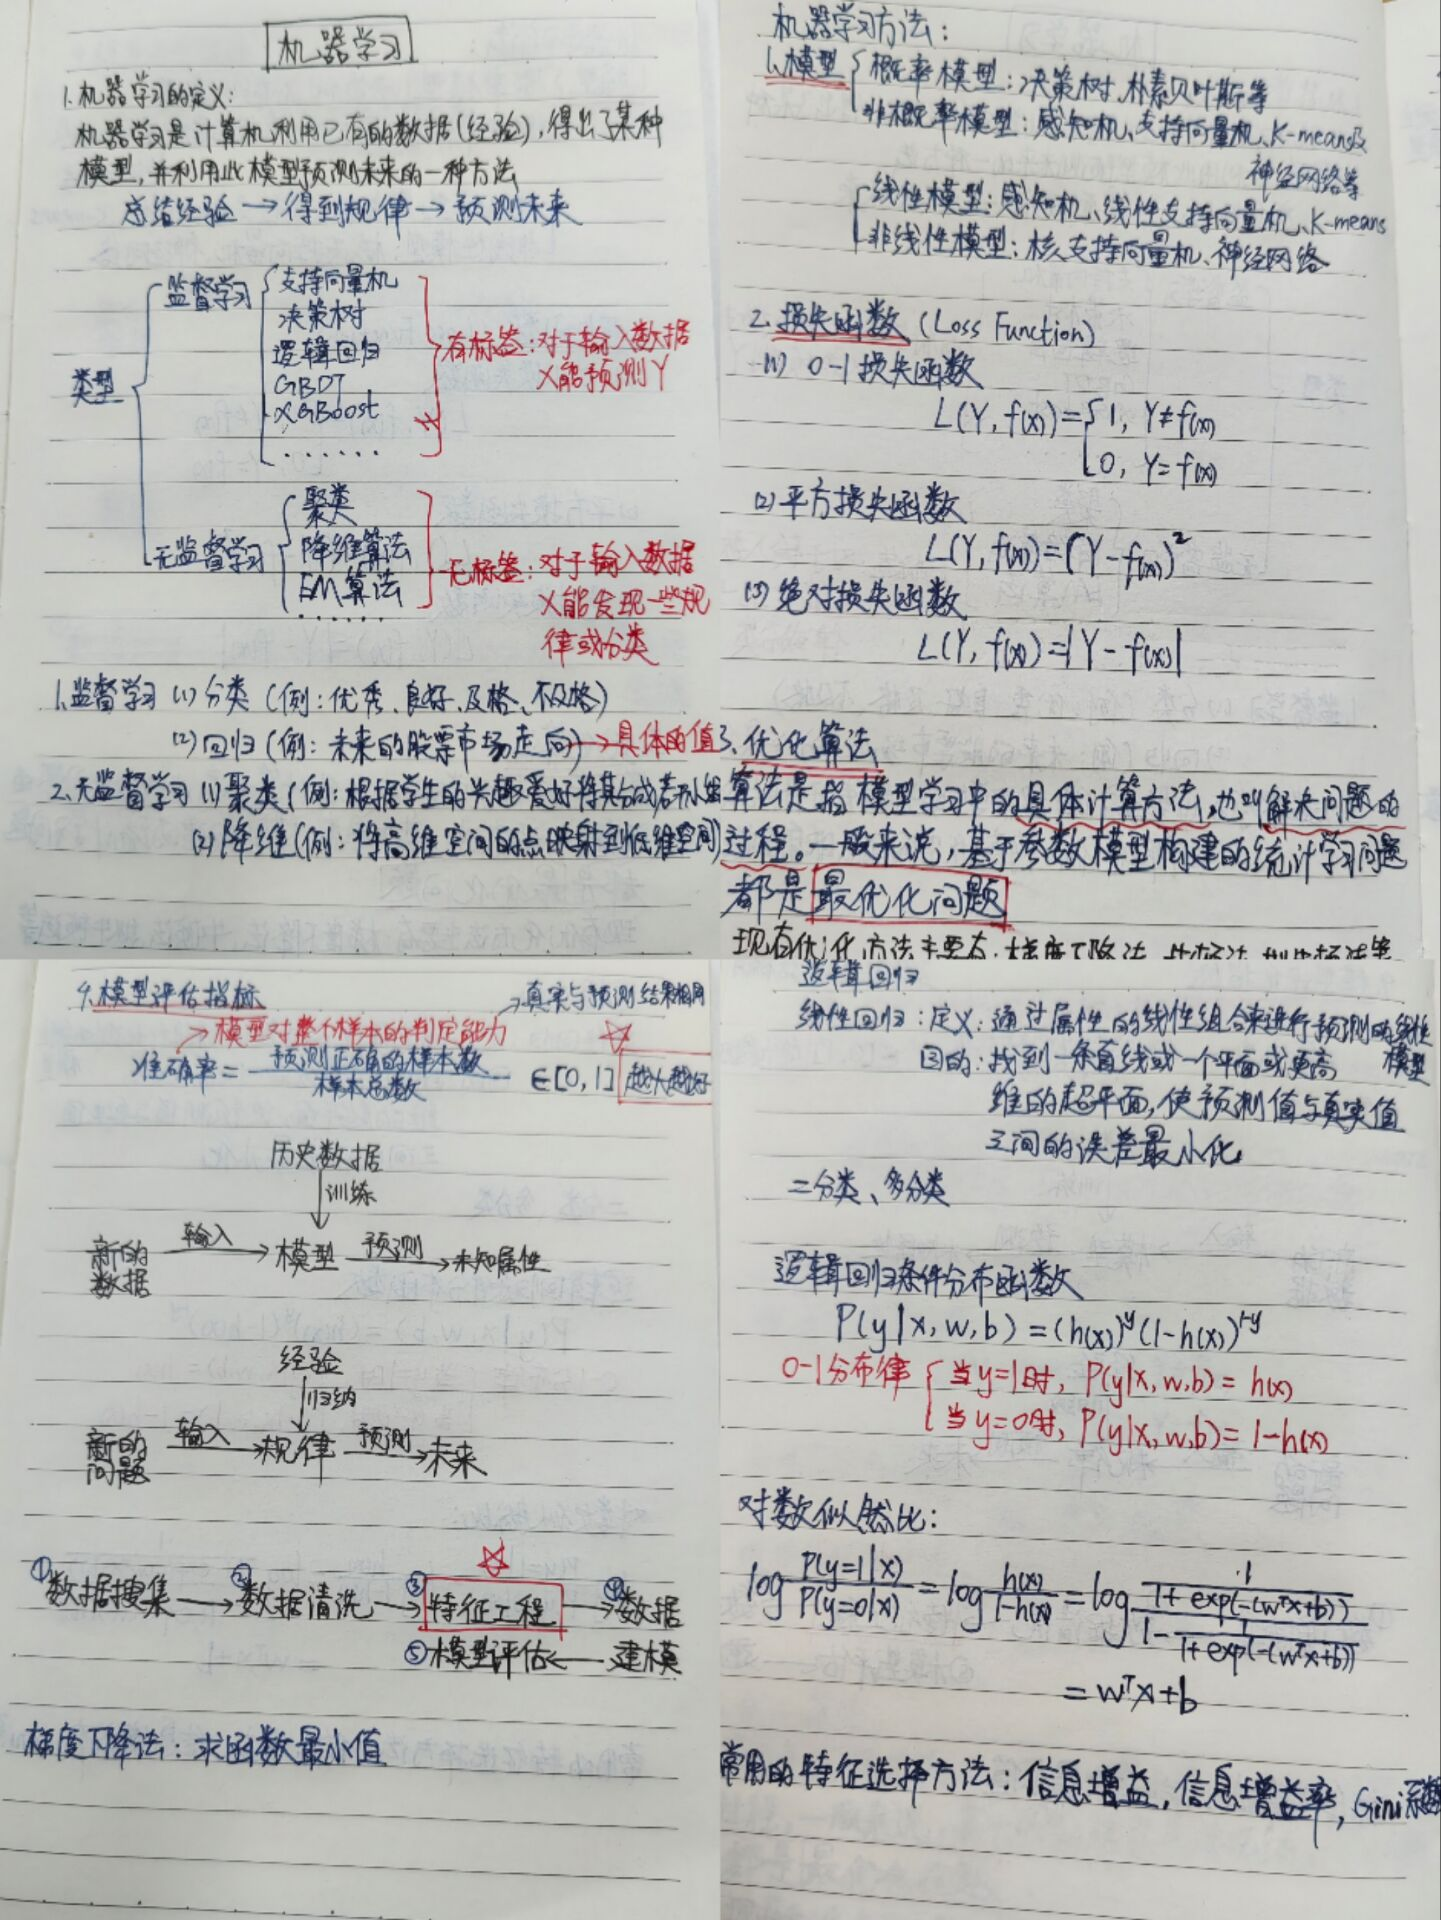 机器学习
1.机器学习的定义:
机器学习是计算机利用已有的数据(经验),得出了某种
模型,并利用此模型预测未来的一种方法
总结经验→得到规律→预测未来
类型
监督学习
支持向量机
决策树
逻辑回归
GBDT
XGBoost
......
有标签:对于输入数据
X能预测Y
无监督学习
聚类
降维算法
EM算法
......
无标签:对于输入数据
X能发现一些规
律或分类
1.监督学习 (1)分类(例:优秀、良好、及格、不及格)
(2)回归(例:未来的股票市场走向)→具体的值
2.无监督学习 (1)聚类(例:根据学生的兴趣爱好将其分成若干小组
(2)降维(例:将高维空间的点映射到低维空间)
机器学习方法:
1.模型
概率模型:决策树、朴素贝叶斯等
非概率模型:感知机、支持向量机、K-means及
神经网络等
线性模型:感知机、线性支持向量机、K-means
非线性模型:核支持向量机、神经网络
2.损失函数(Loss Function)
(1) 0-1损失函数
L(Y,f(x))={1, Y≠f(x)
0, Y=f(x)
(2)平方损失函数
L(Y,f(x))=(Y-f(x))²
(3)绝对损失函数
L(Y,f(x))=|Y-f(x)|
3.优化算法
算法是指模型学习中的具体计算方法,也叫解决问题的
过程。一般来说,基于参数模型构建的统计学习问题
都是最优化问题
现有优化方法主要有:梯度下降法、牛顿法、拟牛顿法等
4.模型评估指标
→真实与预测结果相同
→模型对整个样本的判定能力
准确率=预测正确的样本数/样本总数 ∈[0,1] 越大越好
历史数据
↓训练
新的数据 输入→模型 预测→未知属性
经验
↓归纳
新的问题 输入→规律 预测→未来
①数据搜集→②数据清洗→③特征工程→④数据
⑤模型评估←建模
梯度下降法:求函数最小值
逻辑回归
线性回归:定义:通过属性的线性组合来进行预测的线性
模型
目的:找到一条直线或一个平面或更高
维的超平面,使预测值与真实值
之间的误差最小化.
二分类、多分类
逻辑回归条件分布函数
P(y|x,w,b)=(h(x))^y(1-h(x))^1-y
0-1分布律
当y=1时, P(y|x,w,b)=h(x)
当y=0时, P(y|x,w,b)=1-h(x)
对数似然比:
log P(y=1|x)/P(y=0|x) = log h(x)/1-h(x) = log (1/1+exp(-(wᵀx+b)))/(1-1/1+exp(-(wᵀx+b)))
=wᵀx+b
常用的特征选择方法:信息增益,信息增益率,Gini系数